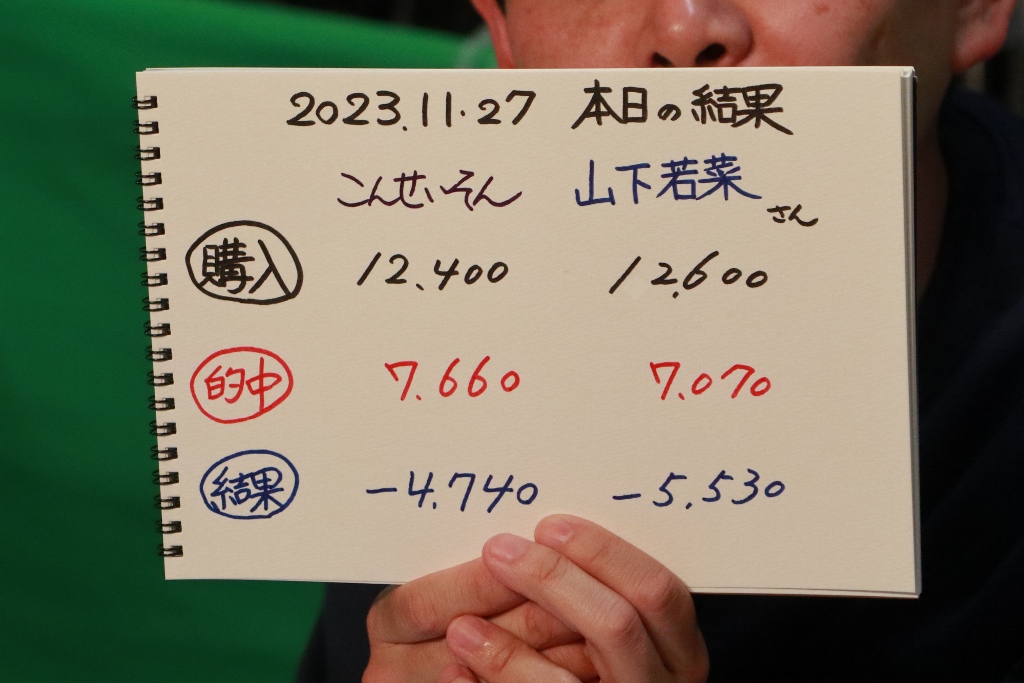 2023.11.27 本日の結果
こんせいそん 山下若菜さん
購入 12.400 12.600
的中 7.660 7.070
結果 -4.740 -5.530